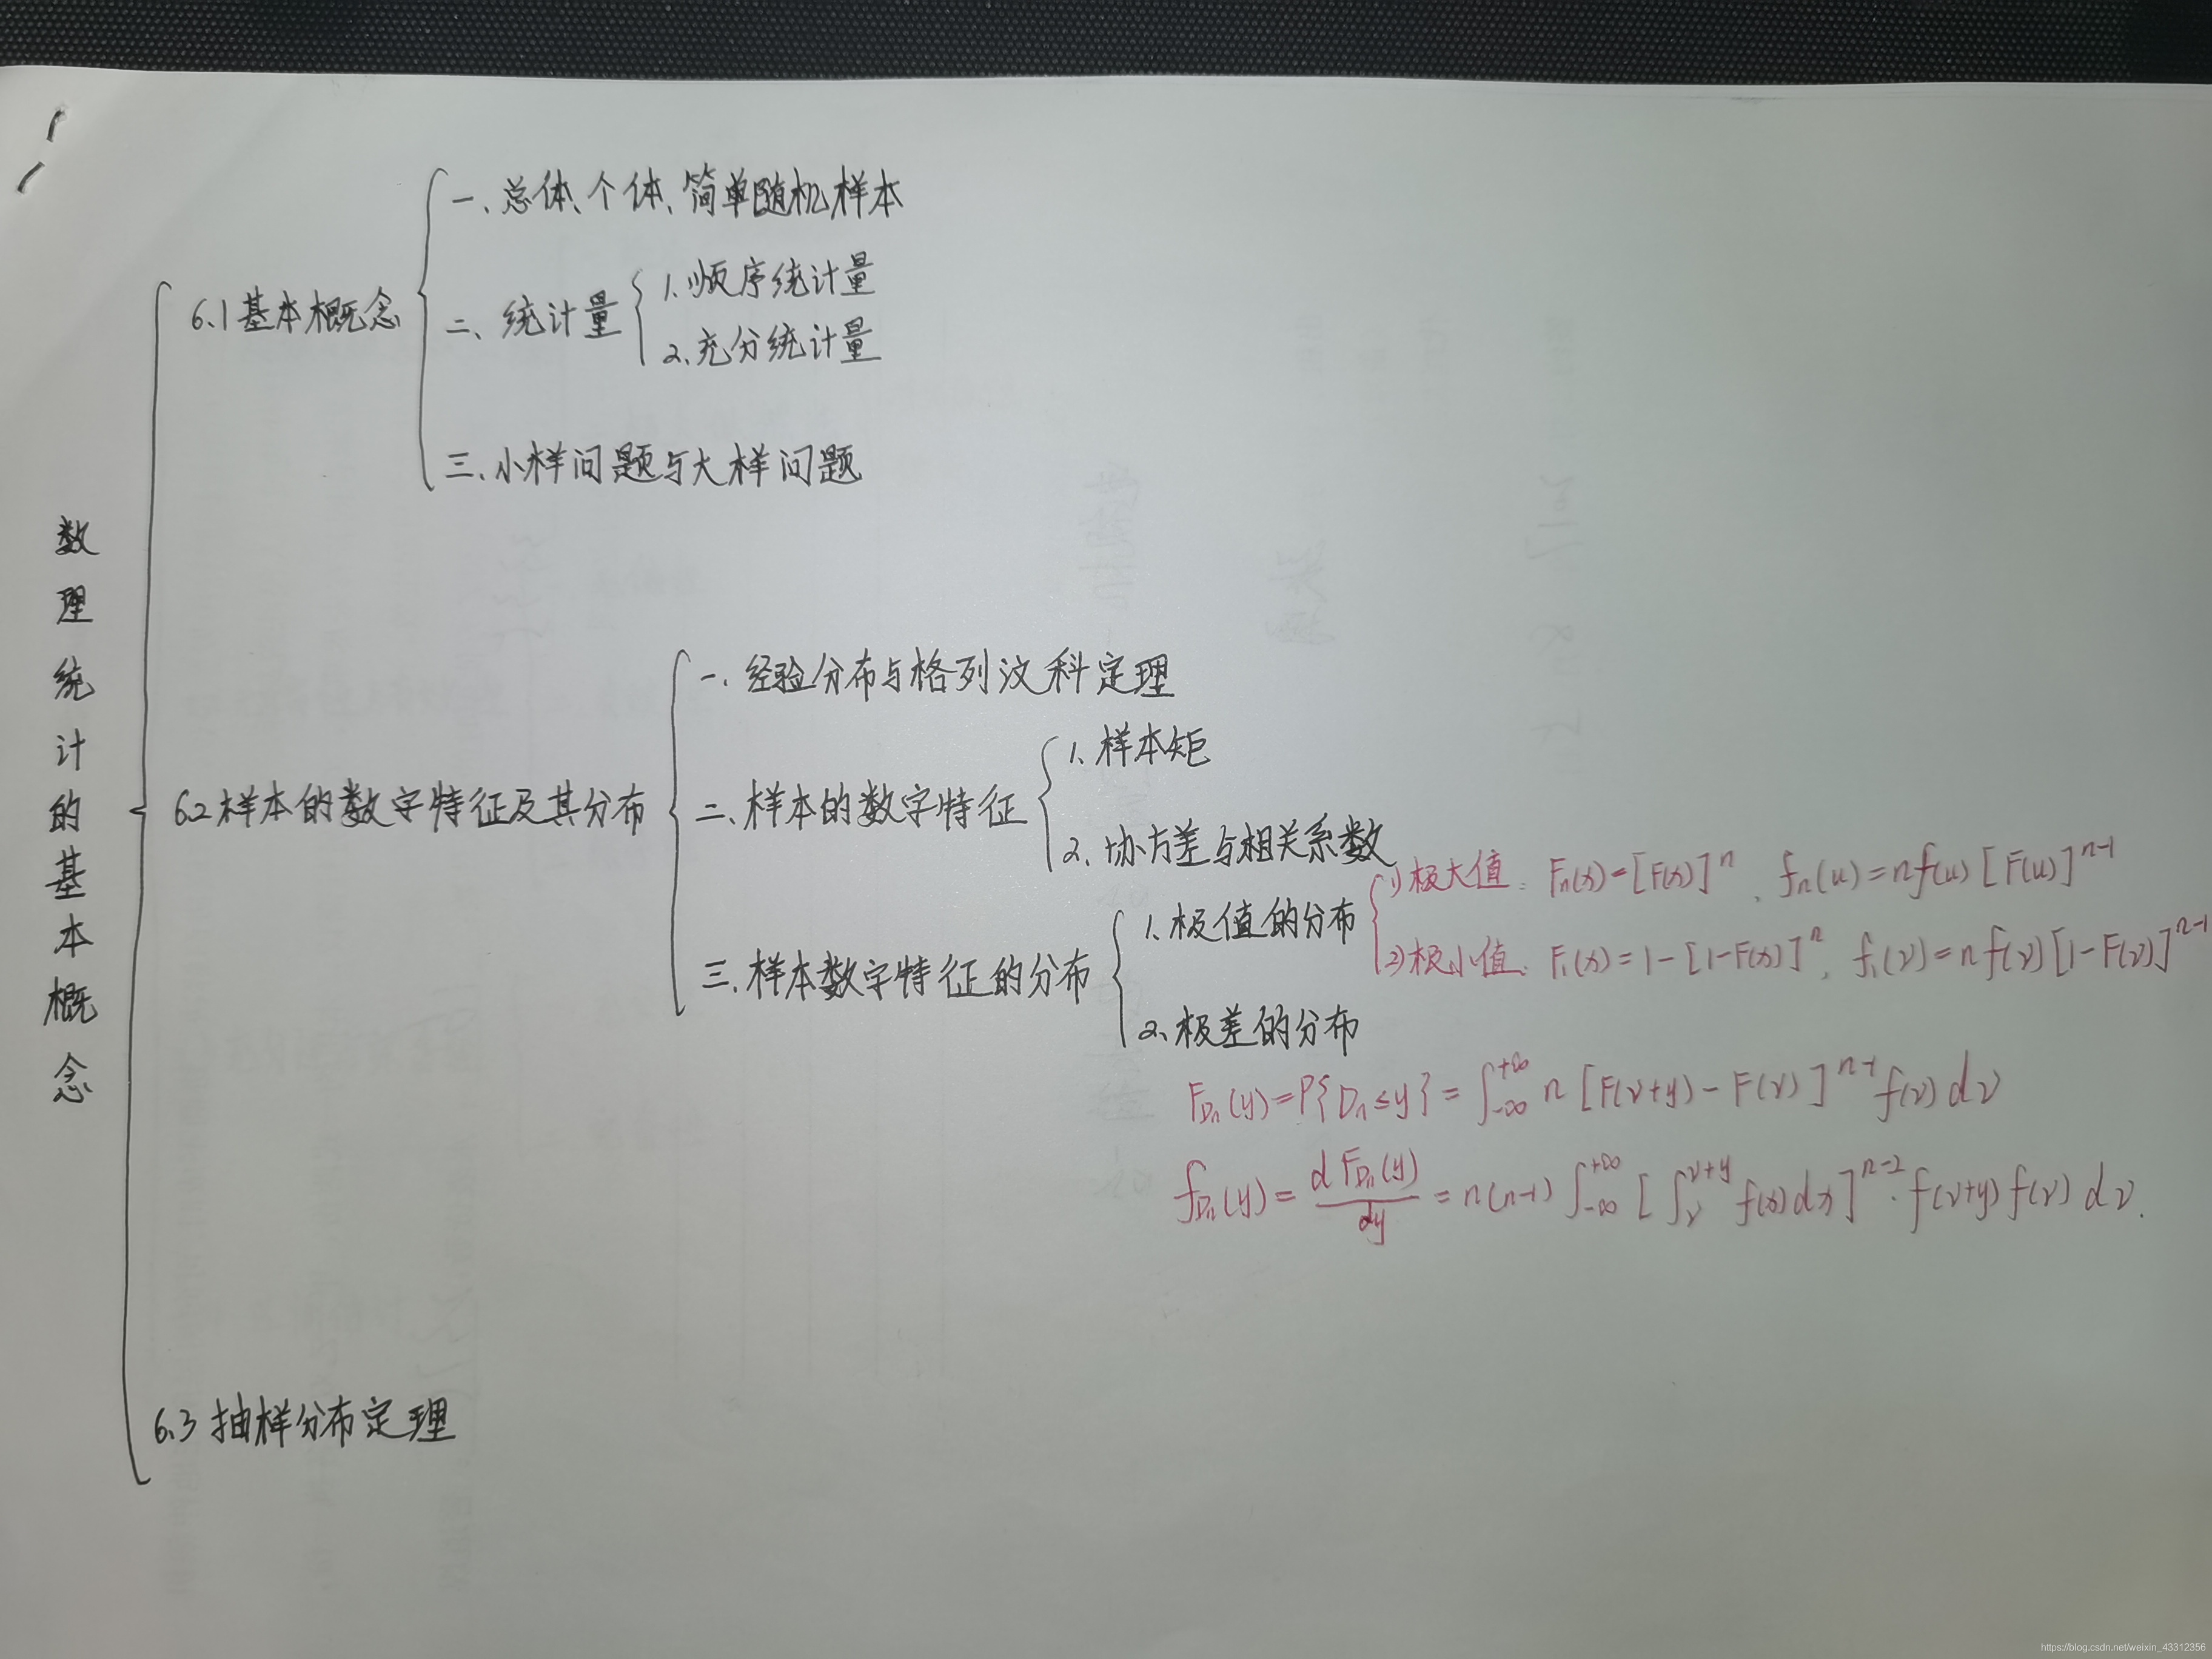 数理统计的基本概念
6.1 基本概念
一、总体、个体、简单随机样本
二、统计量
1、顺序统计量
2、充分统计量
三、小样问题与大样问题
6.2 样本的数字特征及其分布
一、经验分布与格列汶科定理
二、样本的数字特征
1、样本矩
2、协方差与相关系数
三、样本数字特征的分布
1、极值的分布
1) 极大值: Fₙ(x)=[F(x)]ⁿ, fₙ(u)=nf(u)[F(u)]ⁿ⁻¹
2) 极小值: F₁(x)=1-[1-F(x)]ⁿ, f₁(v)=nf(v)[1-F(v)]ⁿ⁻¹
2、极差的分布
F_{Dₙ}(y)=P{Dₙ≤y}=∫_{-∞}^{+∞} n[F(v+y)-F(v)]ⁿ⁻¹f(v)dv
f_{Dₙ}(y)=dF_{Dₙ}(y)/dy=n(n-1)∫_{-∞}^{+∞}[∫_{v}^{v+y}f(x)dx]ⁿ⁻²·f(v+y)f(v)dv.
6.3 抽样分布定理
https://blog.csdn.net/weixin_43312356